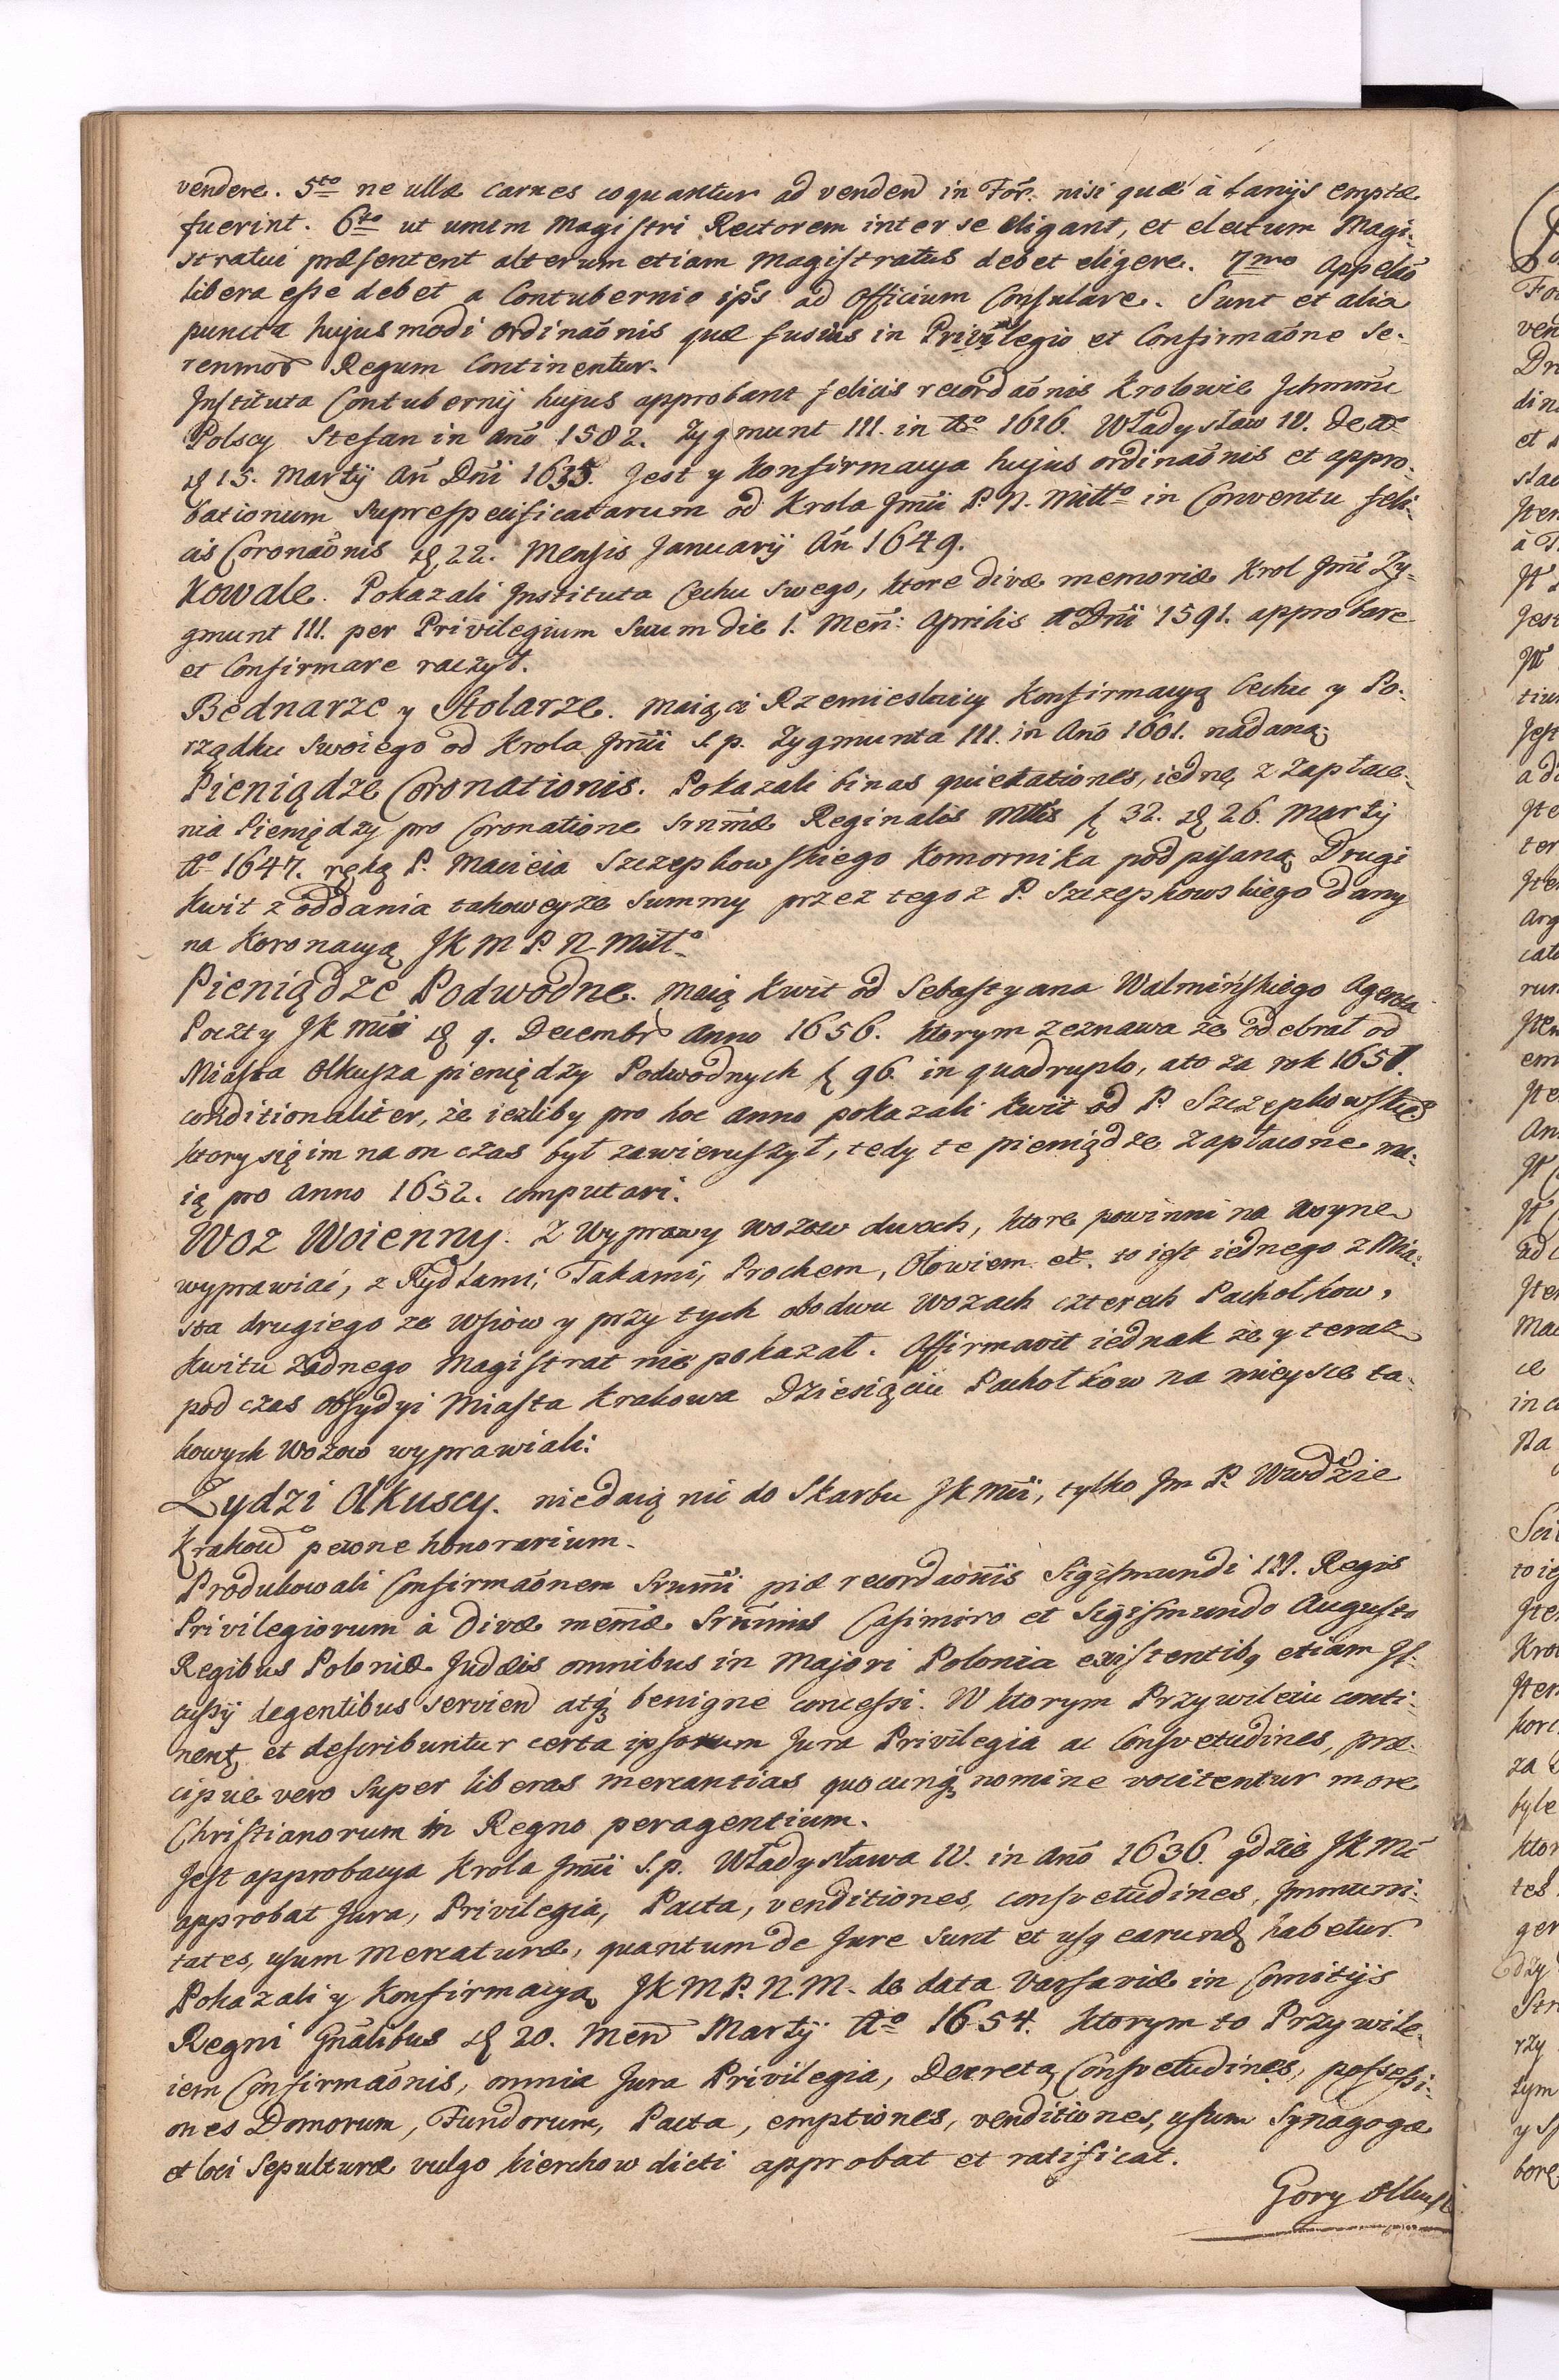 vendere. 5to ne ullæ carnes coquantur ad vendend in For. nisi quæ à Lanijs emptæ
fuerint. 6to ut unum Magistri Rectorem inter se eligant, et electum Magi-
stratui præsentent alterum etiam Magistratus debet eligere. 7mo Appelao
libera esse debet a Contubernio ips ad Officium Consulare. Sunt et alia
puncta hujusmodi ordinaonis quæ fusius in Privilegio et Confirmaone Se-
renmor Regum Continentur.
Instituta Contubernij hujus approbant felicis recordaonis Krolowie Ichmm
Polscy Stefan in Ano 1582. Zygmunt III. in Ao 1616. Władysław IV. De
15. Martij An Dni 1635. Jest y Konfirmacya hujus ordinaonis et appro-
bationum supraspecificatarum od Krola Jmci P. N. Mitto in Conventu feli-
cis Coronaonis 22. Mensis January An 1649.
Kowale. Pokazali Instituta Cechu swego, ktore divæ memoriæ Krol Jmc Zy-
gmunt III. per Privilegium suum die 1. Men: Aprilis Ao Dni 1591. approbare
et Confirmare raczył.
Bednarze y Stolarze. maią ci Rzemieslnicy Konfirmacyą Cechu y Po-
rządku swoiego od Krola Jmci S. p. Zygmunta III. in Ano 1601. nadaną.
Pieniądze Coronationis. Pokazali binas quietationes, iednę z zapłace-
nia Pieniędzy pro Coronatione Srnmæ Reginalis Mttis f 32. 26. Martij
Ao 1647. ręką P. Macieia Szczepkowskiego Komornika podpisaną Drugi
kwit z oddania takoweyże summy przez tegoz P. Szczepkowskiego dany
na Koronacyą JKM P. N. Mitto
Pieniądze Podwodne. maią kwit od Sebastyana Walmińskiego Agenta
Poczty JK Mci 9. Decembr Anno 1656. ktorym zeznawa że odebrał od
Miasta Olkusza pieniędzy Podwodnych f 96. in quadruplo, ato za rok 1651.
conditionaliter, że iezliby pro hoc anno pokazali kwit od P. Szczepkowskieo
ktory się im na on czas był zawieruszył, tedy te pieniądze zapłacone ma-
ią pro anno 1652. computari.
Woz Woienny. Z Wyprawy wozow dwoch, ktore powinni na woyne
wyprawiać, z Rydlami, Takami, Prochem, Ołowiem etc. to iest iednego z Mia-
sta drugiego ze Wsiow y przy tych obodwu Wozach czterech Pachołkow,
kwitu żadnego Magistrat nie pokazał. Affirmavit iednak że y teraz
pod czas obsydyi Miasta Krakowa Dziesiąciu Pachołkow na mieysce ta-
kowych Wozow wyprawiali:
Zydzi Olkuscy. niedaią nic do Skarbu JK Mci, tylko Jm P. Wwdzie
Krakowo pewne honorarium.
Produkowali Confirmaonem Srnmi piæ recordaonis Sigismundi III. Regis
Privilegiorum à Divæ memæ Srnmis Casimiro et Sigismundo Augusto
Regibus Poloniæ Judæis omnibus in Majori Polonia existentibq etiam Il-
cussij degentibus serviend atq benigne concessi. W ktorym Przywileiu conti-
nent et describuntur certa ipsorum Jura Privilegia ac Consvetudines, præ-
cipue vero super liberas mercantias quocunq nomine vocitentur more
Christianorum in Regno peragentium.
Jest approbacya Krola Jmci S. p. Władysława IV. in Ano 1636. gdzie JK Mc
approbat Jura, Privilegia, Pacta, venditiones, consvetudines, Immuni-
tates, usum mercaturæ, quantum de Jure sunt et usq earund habetur.
Pokazali y Konfirmacyą JK M P. N. M. de data Varsaviæ in Comitijs
Regni Gnalibus 20. Men Martij Ao 1654. ktorym to Przywile-
iem Confirmaonis, omnia Jura Privilegia, Decreta, Consvetudines, possessi-
ones Domorum, Fundorum, Pacta, emptiones, venditiones, usum Synagogæ
et loci Sepulturæ vulgo kierchow dicti approbat et ratificat.
Gory Olkusk